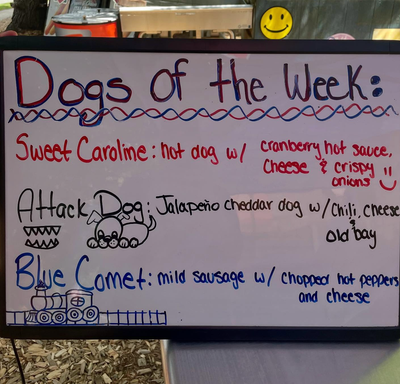 Dogs of the Week:
Sweet Caroline: hot dog w/ cranberry hot sauce,
cheese & crispy
onions
Attack Dog: Jalapeño cheddar dog w/ Chili, cheese
&
old bay
Blue Comet: mild sausage w/ chopped hot peppers
and cheese